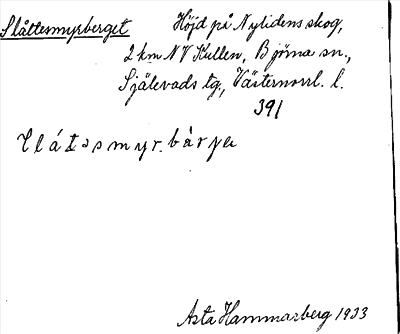 Slåttesmyrberget Höjd på Nylidens skog,
2 km NV Kullen, Björna sn.,
Själevads tg., Västernorrl. l.
391
Asta Hammarberg 1933